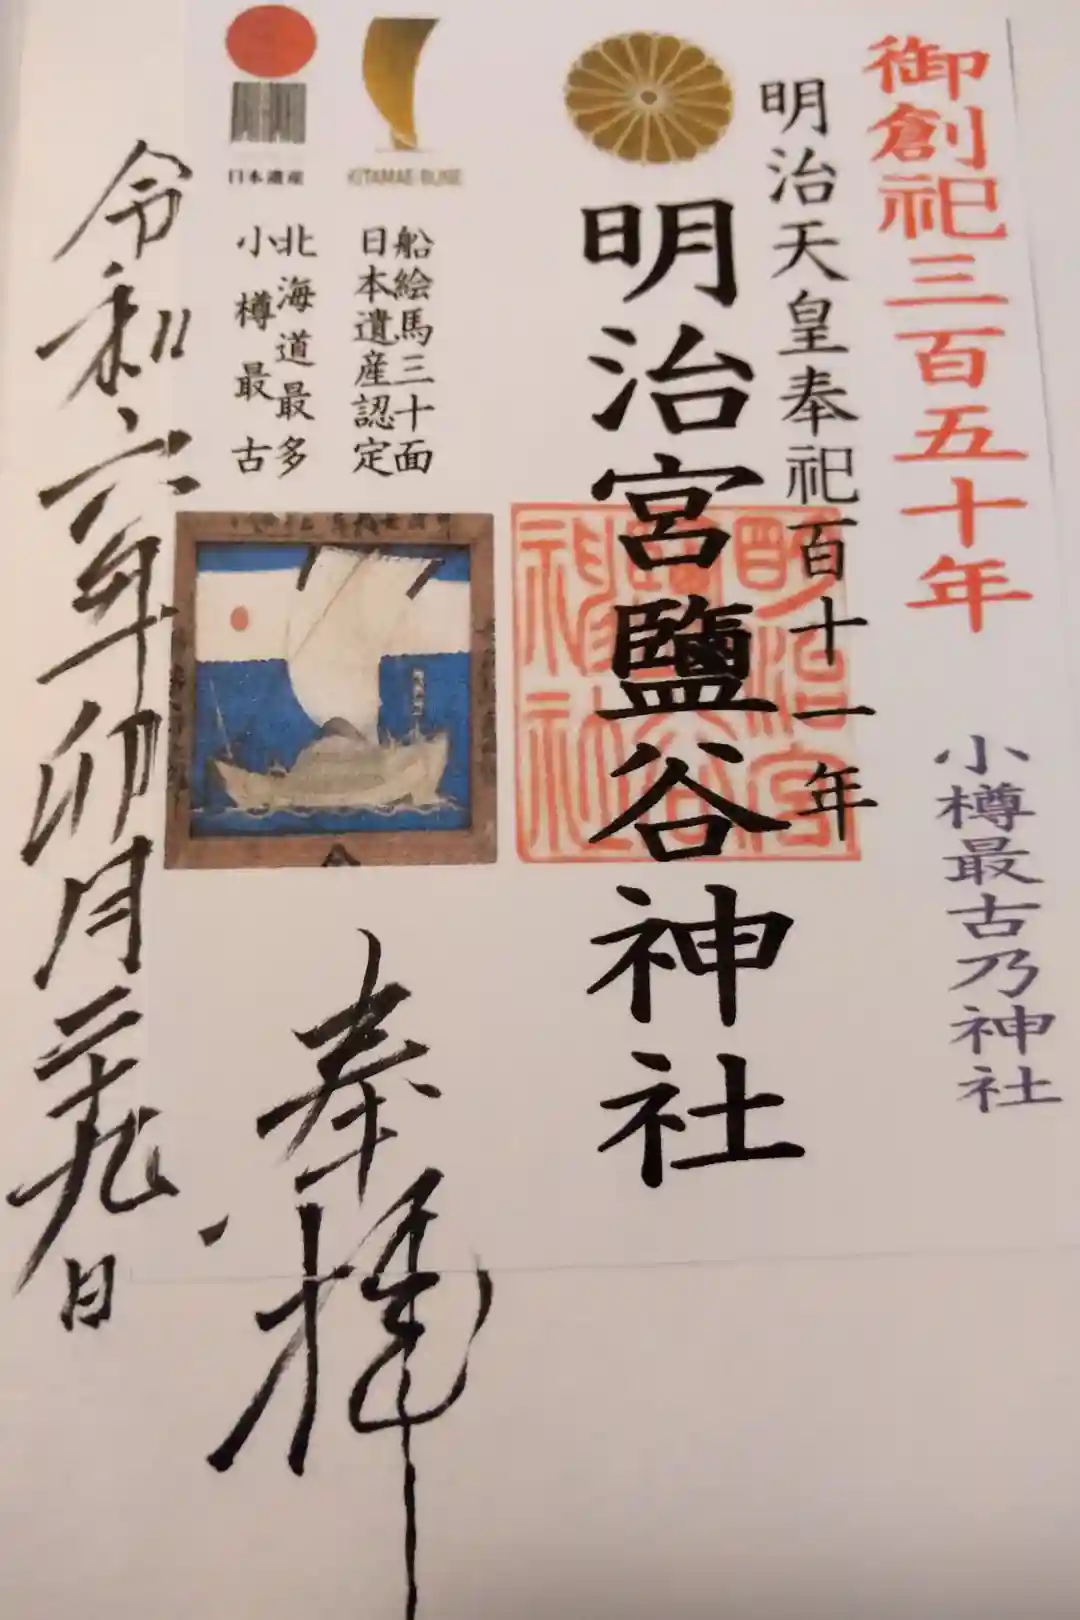 御創祀三百五十年
小樽最古乃神社
明治天皇奉祀百十一年
明治宮鹽谷神社
明治宮鹽谷神社
KITAMAE-BUNE
船絵馬三十面
日本遺産認定
日本遺産
北海道最多
小樽最古
奉拝
令和六年卯月二十九日